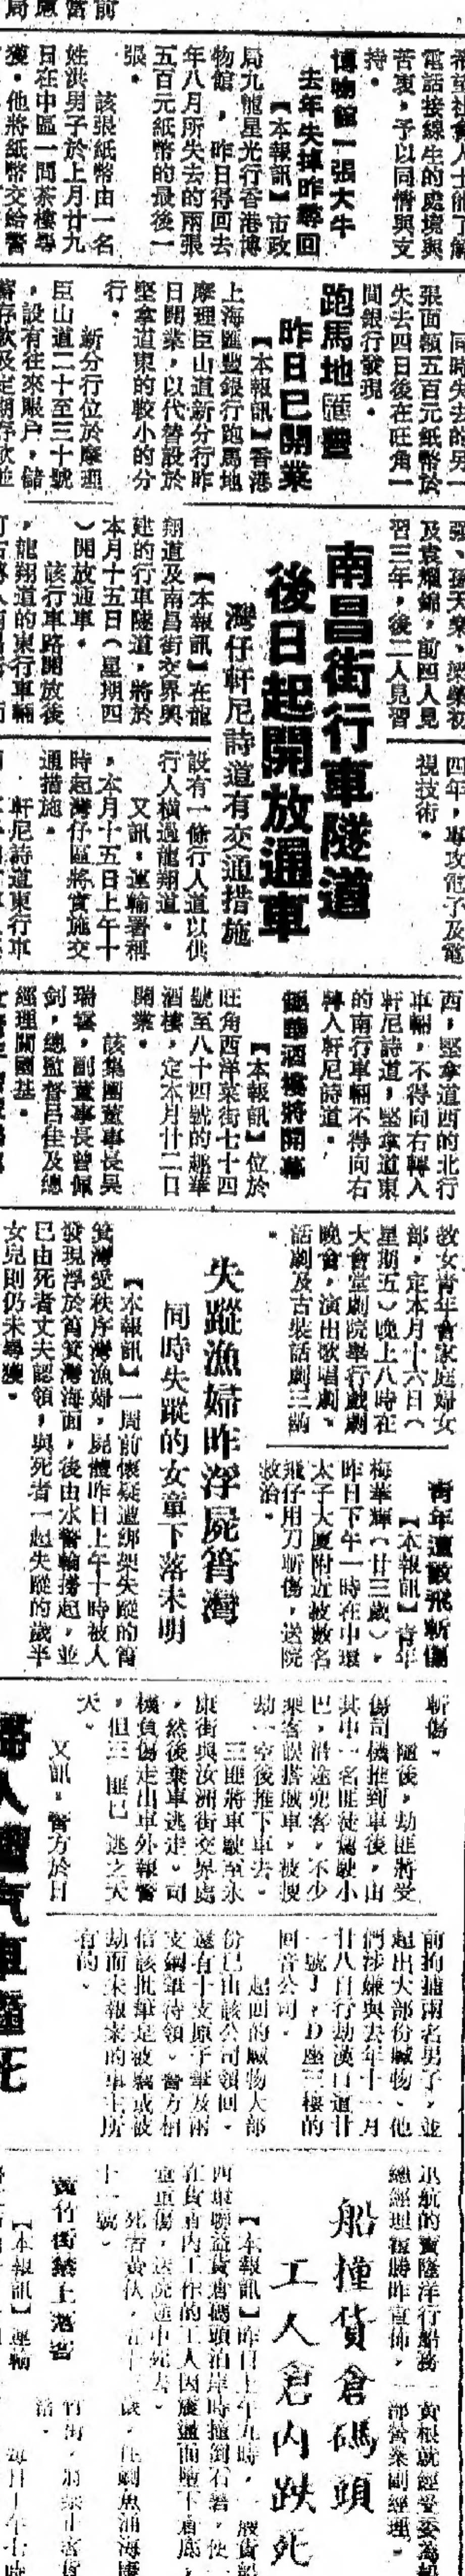 電話接線生的處境與
苦衷，予以同情與支
持。
博物館一張大牛
去年失掉昨尋回
【本報訊】市政
局九龍星光行香港博
物館，昨日得回去
年八月所失去的兩張
五百元紙幣的最後一
張。
該張紙幣由一名
姓洪男子於上月廿九
日在中區一間茶樓尋
獲。他將紙幣交給警
同時失去的另一
張面額五百元紙幣於
失去四日後在旺角一
間銀行發現。
跑馬地匯豐
昨日已開業
【本報訊】香港
上海匯豐銀行跑馬地
摩理臣山道新分行昨
日開業，以代替設於
堅拿道東的較小的分
行。
新分行位於摩理
臣山道二十至三十號
，設有往來賬戶，儲
蓄存款及定期存款並
及袁耀錦，前四人見
習三年，後二人見習
四年，專攻電子及電
視技術。
南昌街行車隧道
後日起開放通車
灣仔軒尼詩道有交通措施
【本報訊】在龍
翔道及南昌街交界興
建的行車隧道，將於
本月十五日（星期四
）開放通車。
該行車路開放後
，龍翔道的東行車輛
設有一條行人道以供
行人橫過龍翔道。
又訊：運輸署稱
，本月十五日上午十
時起灣仔區將實施交
通措施。
軒尼詩道東行車
西，堅拿道西的北行
車輛，不得向右轉入
軒尼詩道，堅拿道東
的南行車輛不得向右
轉入軒尼詩道。
趣華酒樓將開幕
【本報訊】位於
旺角西洋菜街七十四
號至八十四號的趣華
酒樓，定本月廿二日
開業。
該集團董事長吳
瑞雲，副董事長曾佩
劍，總監督呂佳及總
經理關國基。
教女青年會家庭婦女
部，定本月十六日（
星期五）晚上八時在
大會堂劇院舉行戲劇
晚會，演出歌唱劇、
話劇及古裝話劇三齣
。
失蹤漁婦昨浮屍筲灣
同時失蹤的女童下落未明
【本報訊】一周前懷疑遭綁架失蹤的筲
箕灣愛秩序灣漁婦，屍體昨日上午十時被人
發現浮於筲箕灣海面，後由水警輪撈起，並
已由死者丈夫認領，與死者一起失蹤的歲半
女兒則仍未尋獲。
青年遭數飛斬傷
【本報訊】青年
梅華輝（廿三歲），
昨日下午一時在中環
太子大廈附近被數名
飛仔用刀斬傷，送院
救治。
斬傷。
隨後，劫匪將受
傷司機推到車後，由
其中一名匪徒駕駛小
巴，沿途兜客，不少
乘客誤搭賊車，被搜
劫一空後推下車去。
三匪將車駛至永
康街與汝洲街交界處
，然後棄車逃走。司
機負傷走出車外報警
，但三匪已逃之夭
夭。
又訊：警方於日
前拘捕兩名男子，並
起出大部份贓物。他
們涉嫌與去年十一月
廿八日行劫漢口道廿
一號J，D座三樓的
回音公司。
起回的贓物大部
份已由該公司領回，
還有十支原子筆及兩
支鋼筆待領。警方相
信該批筆是被竊或被
劫而未報案的事主所
有的。
船撞貨倉碼頭
工人倉內跌死
【本報訊】昨日上午九時，一艘貨船
西環聯益貨倉碼頭泊岸時撞到石礐，使一
在貨倉內工作的工人因震盪而墮下艙底，
重重傷，送院途中死去。
黃竹街禁上落客
【本報訊】運輸